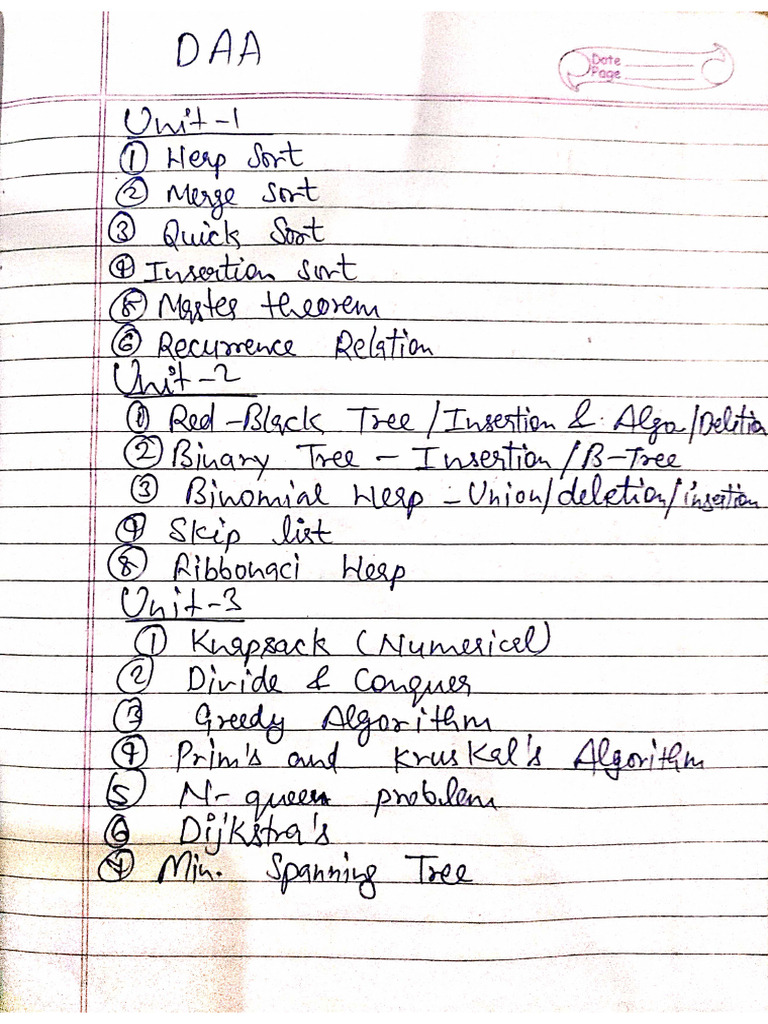 DAA
Date
Page
Unit-1
① Heap Sort
② Merge Sort
③ Quick Sort
④ Insertion sort
⑤ Master theorem
⑥ Recurrence Relation
Unit-2
① Red-Black Tree / Insertion & Algo/Deletion
② Binary Tree - Insertion / B-Tree
③ Binomial Heap - Union/deletion/insertion
④ Skip list
⑤ Fibbonaci Heap
Unit-3
① Knapsack (Numerical)
② Divide & Conquer
③ Greedy Algorithm
④ Prim's and Kruskal's Algorithm
⑤ N-queen problem
⑥ Dijkstra's
⑦ Min. Spanning Tree